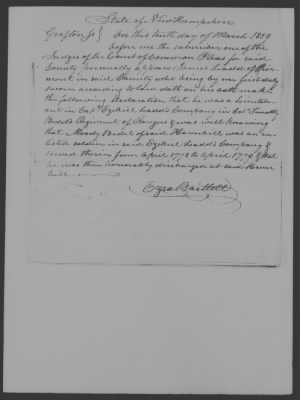 State of New Hampshire
Grafton Ss} On this tenth day of March 1819
before me the subscriber one of the
Judges of the Court of Common Pleas for said
County personally appears James Ladd of
mont in said County who being by me first duly
sworn according to Law doth on his oath make
the following declaration that he was a Lieuten-
ant in Capt Ezekiel Ladd's Company in Col Timothy
Bedel's Regiment of Rangers & was well knowing
that Moody Bedel of said Haverhill was an en-
listed soldier in said Ezekiel Ladd's Company &
served therein from April 1778 to April 1779 & that
he was then honorably discharged at said Haver
hill
Ezra Bartlett